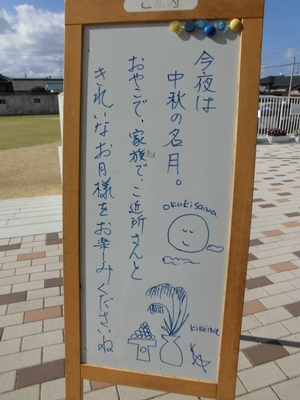 ご案内
今夜は
中秋の名月。
おやこで、家族で、ご近所さんと
きれいなお月様をお楽しみくださいね
okukisama
KiREiNE